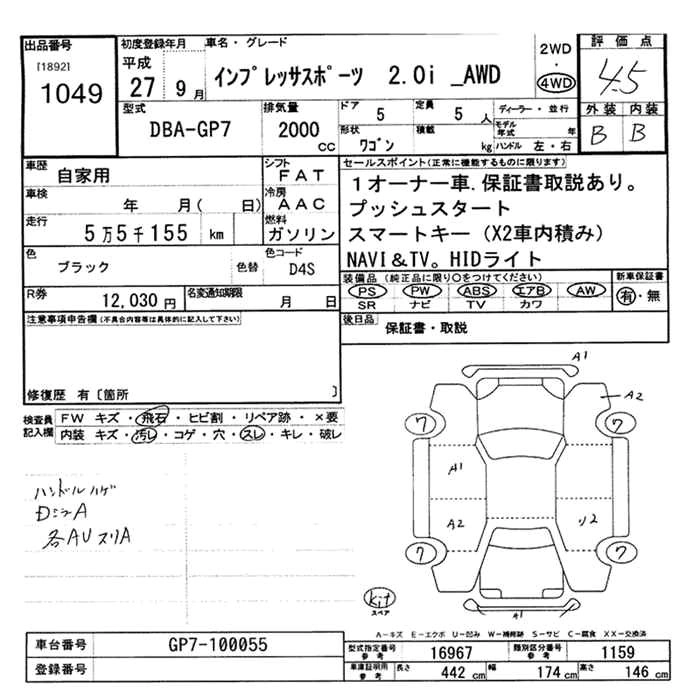 出品番号
[1892]
1049
初度登録年月
平成
27 9 月
車名・グレード
インプレッサスポーツ 2.0i _AWD
2WD
・
4WD
評価点
4.5
外装 内装
B B
型式
DBA-GP7
排気量
2000 cc
ドア 5
定員 5 人
ディーラー・並行
モデル年式 年
形状 ワゴン
積載 kg
ハンドル 左・右
車歴 自家用
シフト FAT
車検 年 月( 日)
冷房 AAC
走行 5万5千155 km
燃料 ガソリン
色 ブラック 色替
色コード D4S
R券 12,030 円
名変通知期限 月 日
セールスポイント(正常に機能するものに限ります)
1オーナー車.保証書取説あり。
プッシュスタート
スマートキー(X2車内積み)
NAVI&TV。HIDライト
装備品(純正品に限り○をつけてください)
PS PW ABS エアB AW
SR ナビ TV カワ
新車保証書
有・無
後日品 保証書・取説
注意事項申告欄(不具合内容等は具体的に記入して下さい)
修復歴 有〔箇所 〕
検査員記入欄
FW キズ・飛石・ヒビ割・リペア跡・×要
内装 キズ・汚レ・コゲ・穴・スレ・キレ・破レ
ハンドルハゲ
DミラA
各AUスリA
A1
A2
7 7
A1
A2
リ2
7 7
kit
スペア
A1
A-キズ E-エクボ U-凹み W-補修跡 S-サビ C-腐食 XX-交換済
車台番号 GP7-100055
登録番号
型式指定番号 参考 16967
類別区分番号 参考 1159
車庫証明用 参考 長さ 442 cm 幅 174 cm 高さ 146 cm